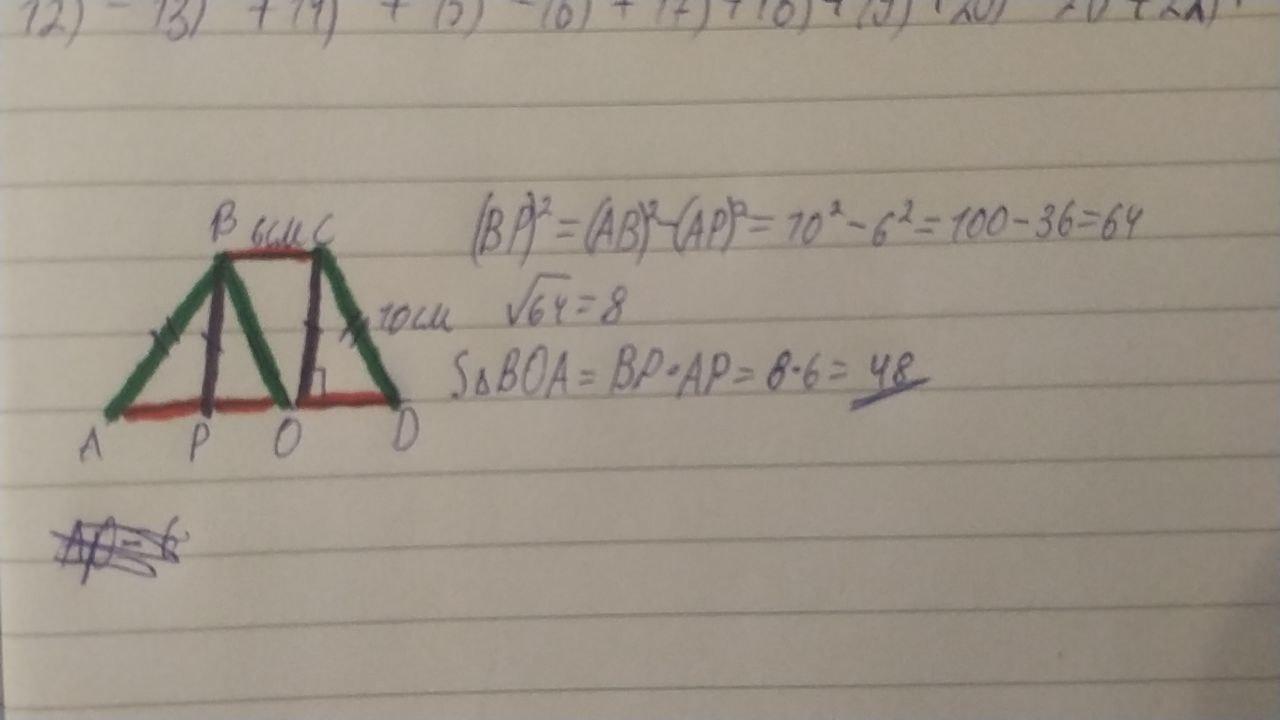 12) - 13) + 14) + 15) - 16) + 17) + 18) + 19) + 20)
B 6см C
(BP)² = (AB)² - (AP)² = 10² - 6² = 100 - 36 = 64
10см
√64 = 8
S△BOA = BP · AP = 8 · 6 = 48
A P O D